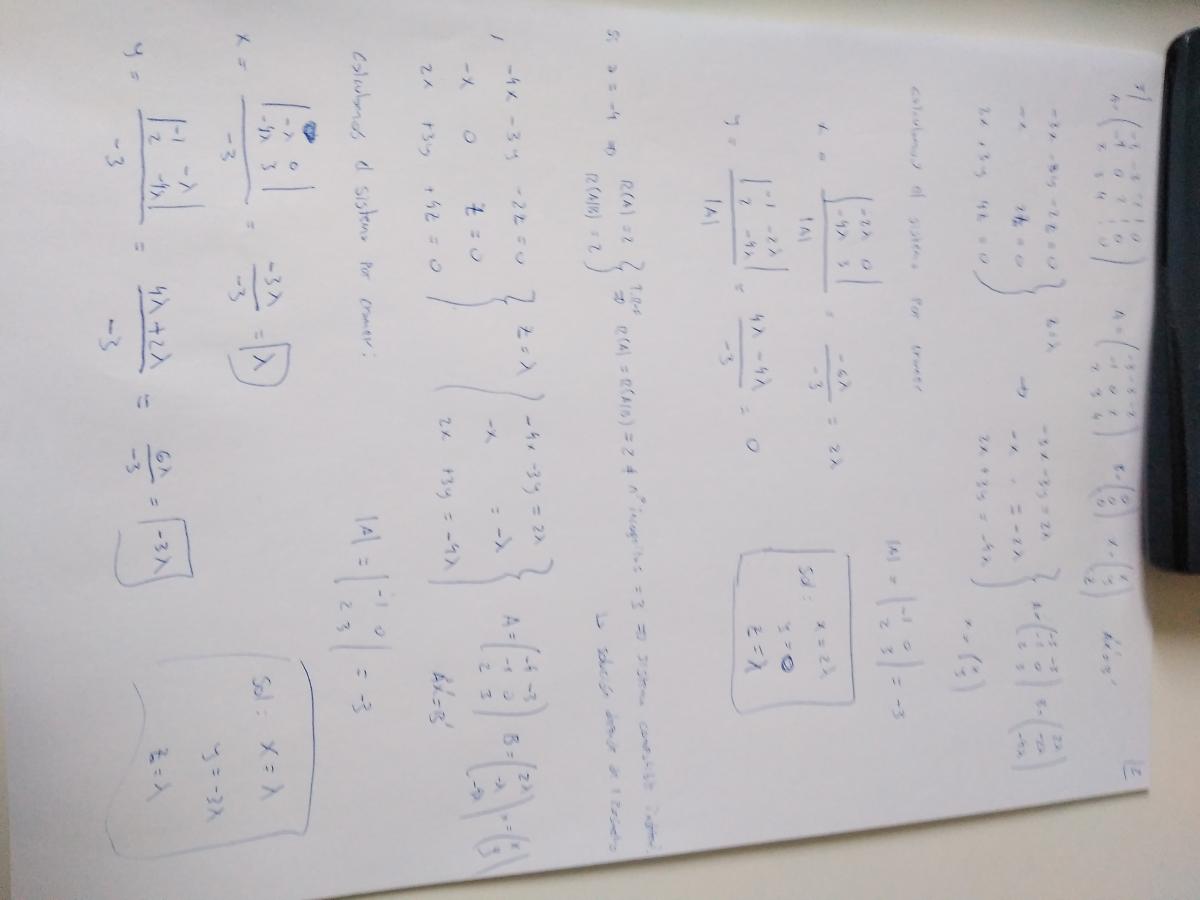 12
A = (-3 -3 -2 | 0
-1 0 2 | 0
2 3 4 | 0)
A = (-3 -3 -2
-1 0 2
2 3 4)
B = (0
0
0)
X = (x
y
z)
-3x -3y -2z = 0
-x 2z = 0
2x +3y 4z = 0
z = λ
⇒
-3x -3y = 2λ
-x = -2λ
2x +3y = -4λ
A = (-3 -3
-1 0
2 3)
B = (2λ
-2λ
-4λ)
X = (x
y)
calculamos el sistema por cramer
|A| = |-1 0
2 3| = -3
x = |-2λ 0
-4λ 3| / |A| = -6λ / -3 = 2λ
y = |-1 -2λ
2 -4λ| / |A| = 4λ - 4λ / -3 = 0
Sol: x = 2λ
y = 0
z = λ
Si a = -4 ⇒ R(A) = 2
R(A|B) = 2
⇒ R(A) = R(A|B) = 2 ≠ nº incognitas = 3 ⇒ sistema compatible
↳ solución
-4x -3y -2z = 0
-x 0 z = 0
2x +3y +4z = 0
z = λ
-4x -3y = 2λ
-x = -λ
2x +3y = -4λ
A = (-4 -3
-1 0
2 3)
B = (2λ
-λ
-4λ)
= (x
y)
calculamos el sistema por cramer:
|A| = |-1 0
2 3| = -3
x = |-λ 0
-4λ 3| / -3 = -3λ / -3 = λ
y = |-1 -λ
2 -4λ| / -3 = 4λ + 2λ / -3 = 6λ / -3 = -3λ
Sol: x = λ
y = -3λ
z = λ